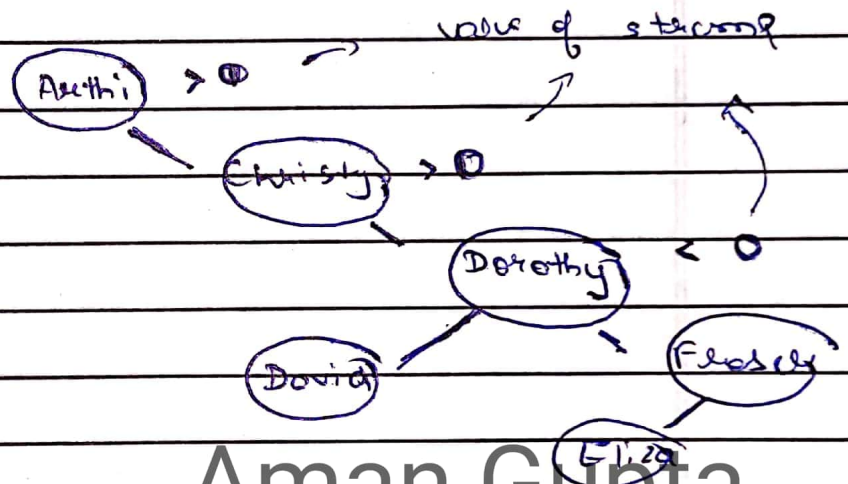 value of strcmp
Arthi > 0
Christy > 0
Dorothy < 0
David
Eliza
Aman Gupta